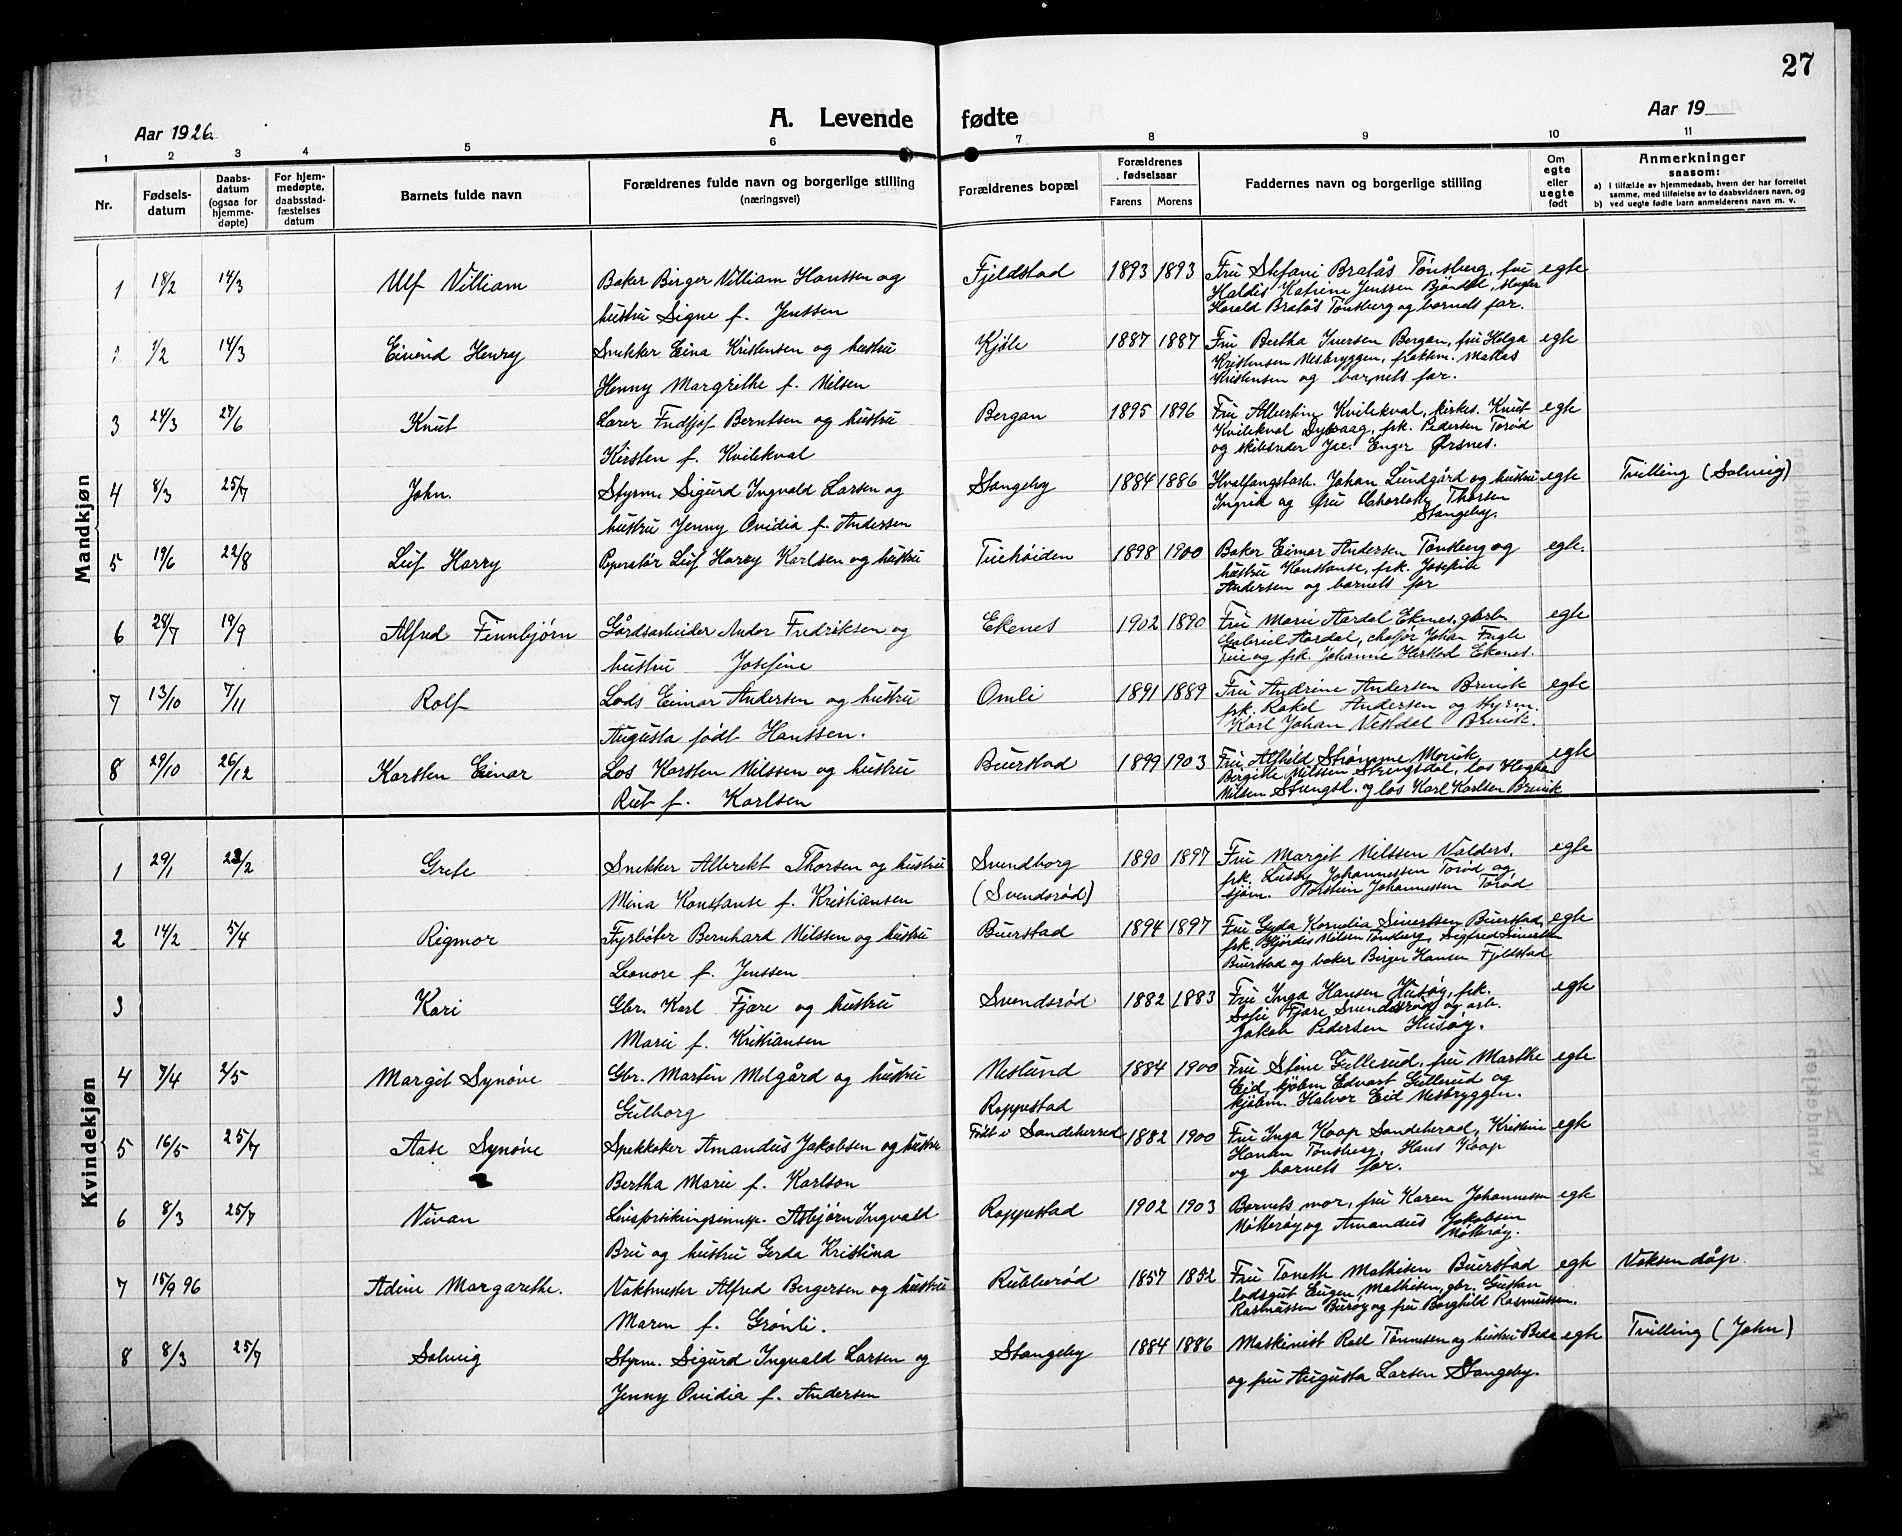 27
A. Levende fødte
Aar 1926
Aar 19
1 2 3 4 5 6 7 8 9 10 11
Nr.
Fødsels-
datum
Daabs-
datum
(ogsaa for
hjemme-
døpte)
For hjem-
medøpte,
daabsstad-
fæstelses
datum
Barnets fulde navn
Forældrenes fulde navn og borgerlige stilling
(næringsvei)
Forældrenes bopæl
Forældrenes
fødselsaar
Farens Morens
Faddernes navn og borgerlige stilling
Om
egte
eller
uegte
født
Anmerkninger
saasom:
a) I tilfælde av hjemmedaab, hvem der har forrettet
samme, med tilføielse av to daabsvidners navn, og
b) ved uegte fødte barn anmelderens navn m. v.
Mandkjøn
1 18/2 14/3 Ulf Villiam Baker Birger Villiam Hanssen og Fjeldstad 1893 1893 Fru Stefani Bratås Tønsberg, fru egte
hustru Signe f. Jenssen Haldis Katrine Jenssen
Harald Bratås Tønsberg og barnets far.
1/2 14/3 Eivind Henry Snekker Eina Kristensen og hustru Kjøle 1887 1887 Fru Bertha Iversen Bergan, fru Helga egte
Henny Margrethe f. Nilsen Kristensen Nesbryggen,
Kristensen og barnets far.
3 24/3 27/6 Knut Lærer Fridtjof Berntsen og hustru Bergan 1895 1896 Fru Albertine Kvilekval, kirkes. Knut egte
Kirsten f. Kvilekval Kvilekval Dybvaag, frk. Pedersen Torød
og skibsreder Jac. Enger Ørsnes.
4 8/3 25/7 John. Styrm. Sigurd Ingvald Larsen og Stangeby 1884 1886 Hvalfangstarb. Johan Lundgård og hustru egte Tvilling (Solveig)
hustru Jenny Ovidia f. Andersen Ingrid og fru Charlotte Thorsen
Stangeby.
5 19/6 22/8 Leif Harry Reperatør Leif Harry Karlsen og hustru Tuehøiden 1898 1900 Baker Eimar Andersen Tønsberg og egte.
hustru Konstanse, frk. Josefine
Andersen og barnets far
6 28/7 19/9 Alfred Finnbjørn Gårdsarbeider Andor Fredriksen og Ekenes 1902 1890 Fru Marie Aardal Ekenes, gårdbr. egte
hustru Josefine Gabriel Aardal, chafør Johan Fugle
Tuie og frk. Johanne Herstad Ekenes.
7 13/10 7/11 Rolf Lods Einar Andersen og hustru Omli 1891 1889 Fru Andrine Andersen Brevik egte
Augusta født Hanssen. frk. Rakel Andersen og styrm.
Karl Johan Vestdal Brevik.
8 29/10 26/12 Karsten Einar Los Karsten Nilssen og hustru Buerstad 1899 1903 Fru Alfhild Strømme egte
Rut f. Karlsen Birgitte Nilssen Stungsdal, los
Nilsen Stungsd. og los Karl Karlsen Brevik
Kvindekjøn
1 29/1 28/2 Grete Snekker Albrekt Thorsen og hustru Svendborg 1890 1897 Fru Margit Nilssen Valders, egte
Mina Konstanse f. Kristiansen (Svendsrød) frk. Lussy Johannessen Torød og
sjøm. Torstein Johannessen Torød
2 14/2 5/4 Rigmor Fyrbøter Bernhard Nilssen og hustru Buerstad 1894 1897 Fru Gyda Kornelia Sivertsen Buerstad, egte
Leonore f. Jenssen frk. Hjørdis Nilsen Tønsberg, Sigfred Sivertsen
Buerstad og baker Birger Hansen Fjeldstad
3 Kari Gbr. Karl Fjære og hustru Svendsrød 1882 1883 Fru Inga Hansen Husøy, frk. egte
Marie f. Kristiansen Sofie Fjære Svendsrød og arb.
Jakob Pedersen Husøy.
4 7/4 2/5 Margit Synøve Gbr. Martin Melgård og hustru Neslund 1884 1900 Fru Stine Gullerud, fru Marthe egte
Gulborg Roppestad Eid, kjøbm Edvart Gullerud og
kjøbm. Halvor Eid Nesbryggen.
5 16/5 25/7 Aase Synøve Spekkoker Amandus Jakobsen og hustru Født i Sandeherred 1882 1900 Fru Inga Kaap Sandeherad, Kristine egte
Bertha Marie f. Karlson Hansen Tønsberg, Hans Kaap
og barnets far.
6 8/3 25/7 Vivan Livsforsikringsinnsp. Asbjørn Ingvald Roppestad 1902 1903 Barnets mor, fru Karen Johannessen egte
Bru og hustru Gerda Kristina Nøtterøy og Amandus Jakobsen
Nøtterøy.
7 15/9 96 Adine Margarethe. Vaktmester Alfred Bergersen og hustru Rubberød 1857 1852 Fru Toneth Mathisen Buerstad egte Voksen dåp
Maren f. Grønli. lodsgut Eugen Mathisen, gbr. Gustav
Rasmussen Burøy og fru Borghild Rasmussen.
8 8/3 25/7 Solveig Styrm. Sigurd Ingvald Larsen og Stangeby 1884 1886 Maskinist Rolf Tønnesen og hustru Beda egte Tvilling (John)
Jenny Ovidia f. Andersen og fru Augusta Larsen Stangeby.